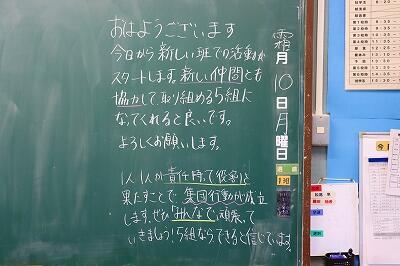 おはようございます
今日から新しい班での活動が
スタートします。新しい仲間とも
協力して、取り組める5組に
なってくれると良いです。
よろしくお願いします。
1人1人が責任持って役割を
果たすことで集団行動が成立
します。ぜひ「みんなで」頑張って
いきましょう!5組ならできると信じています。
霜月10日月曜日